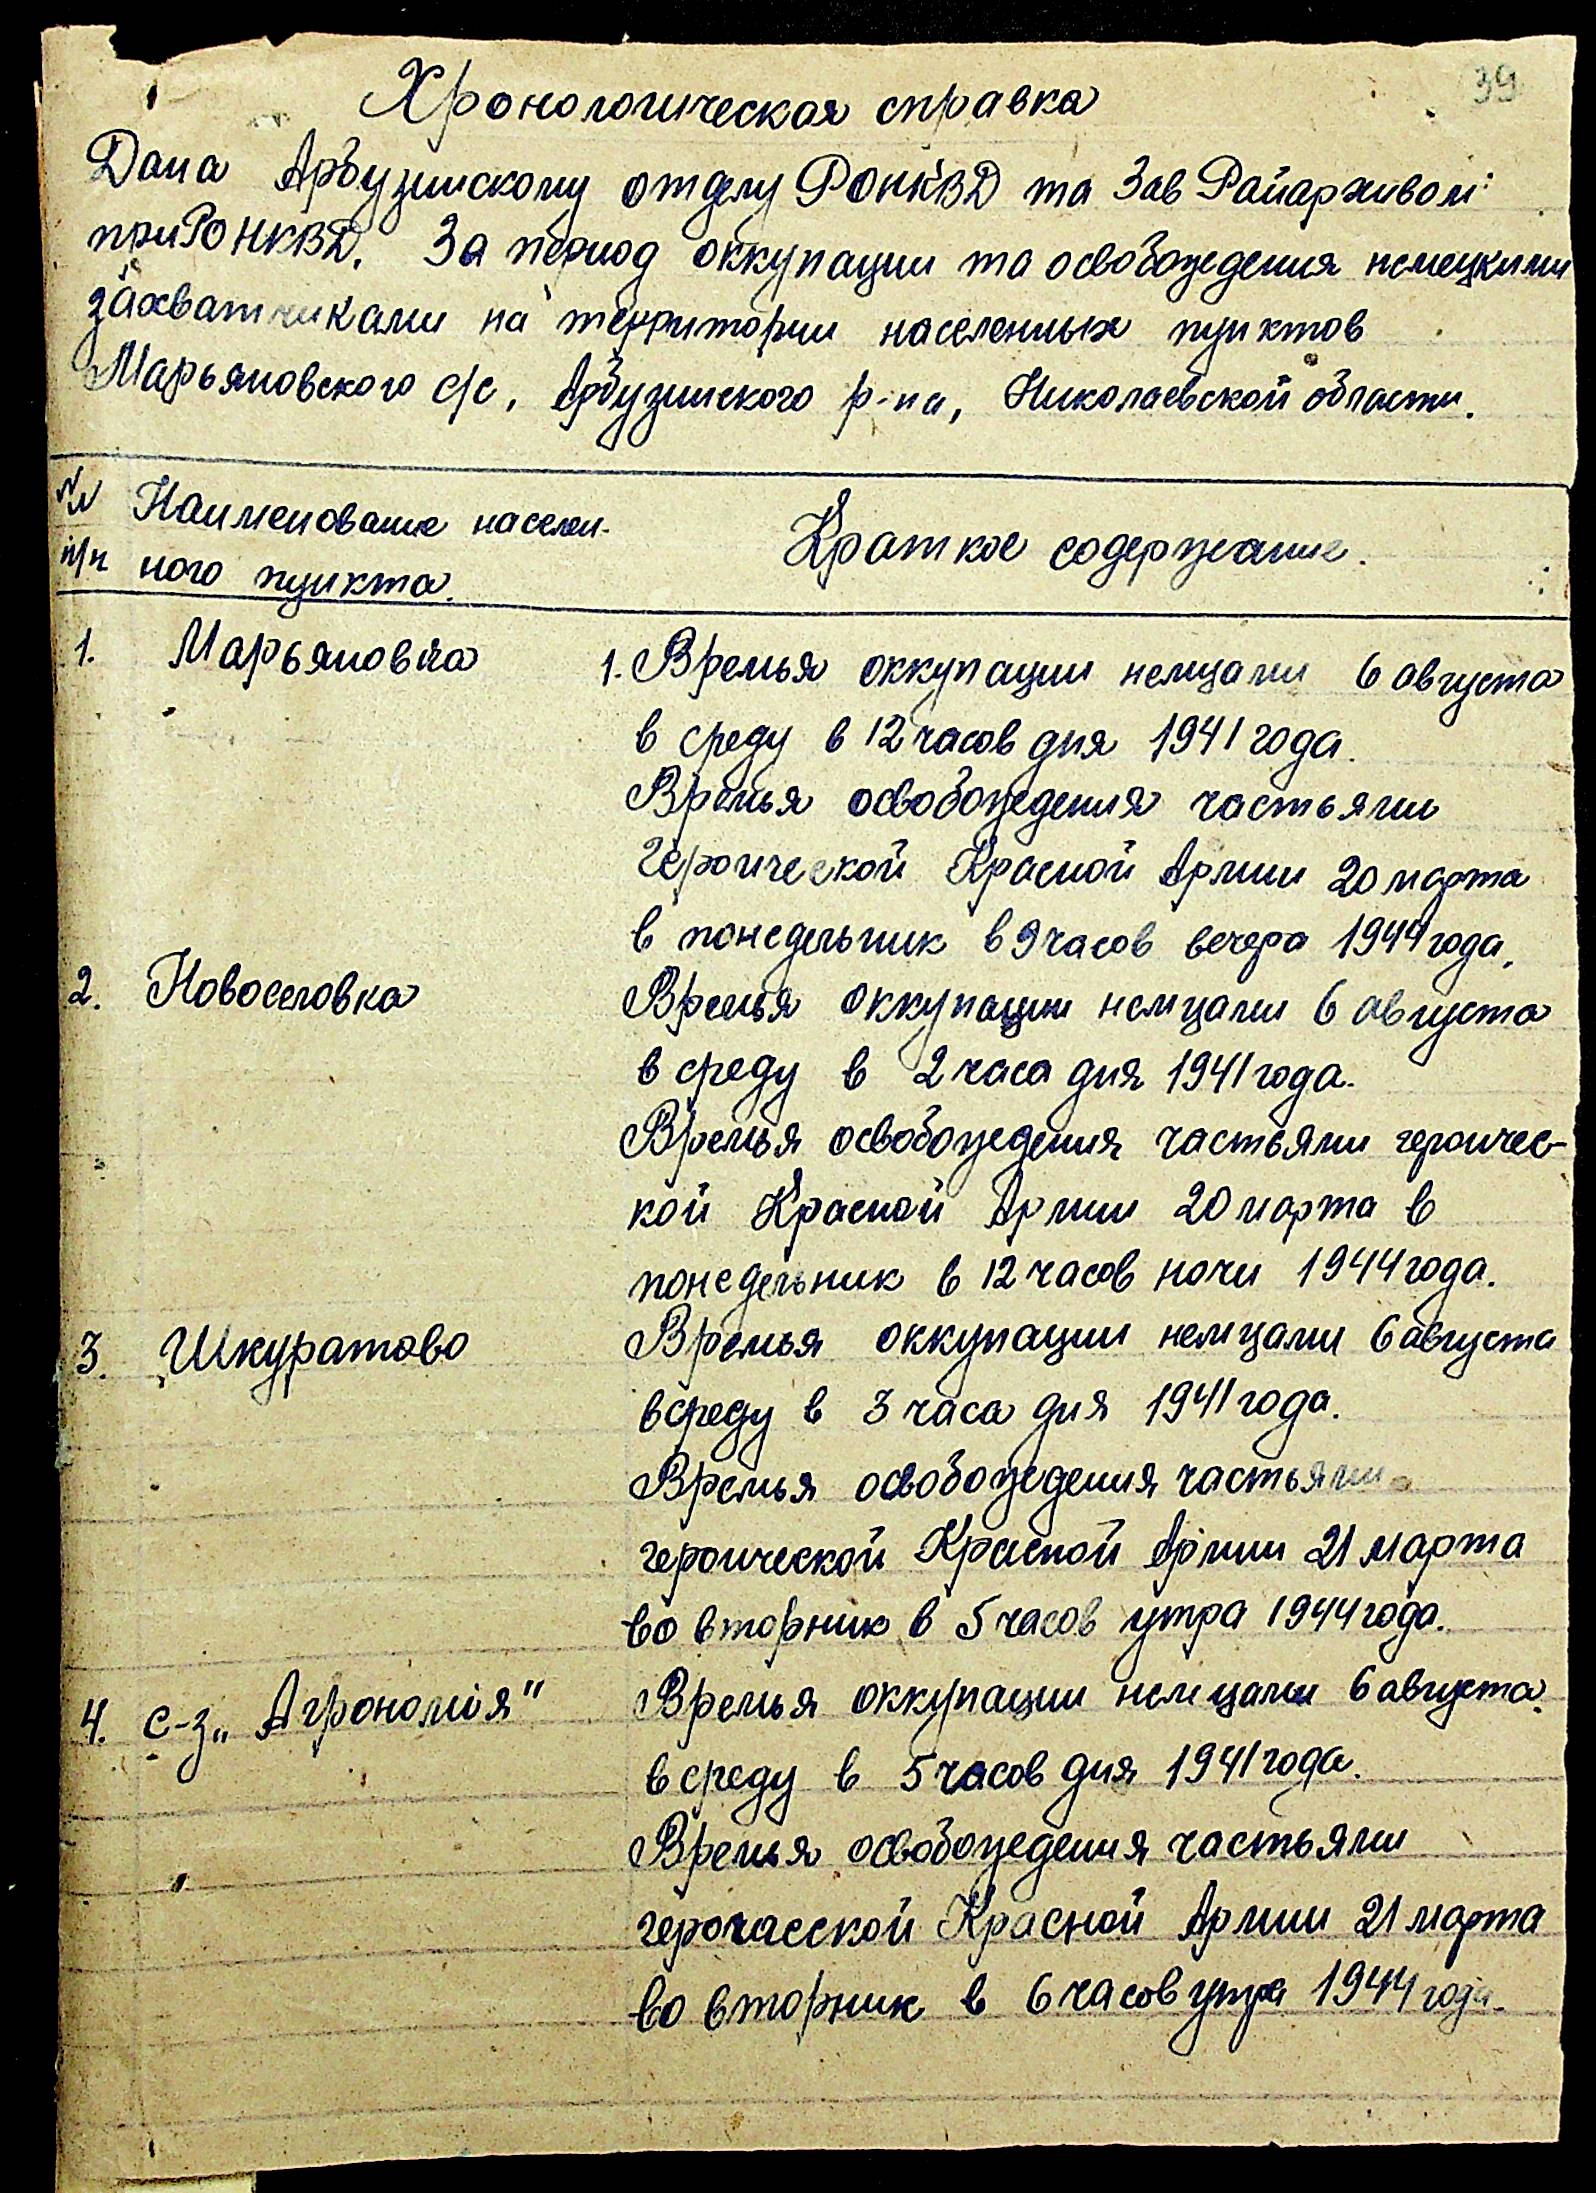 39
Хронологическая справка
Дана Арбузинскому отделу РОНКВД та Зав Райархивом
при РОНКВД. За период оккупации та освобождения немецкими
захватчиками на территории населенных пунктов
Марьяновского с/с, Арбузинского р-на, Николаевской области.
№№ Наименование населен- Краткое содержание.
п/п ного пункта.
1. Марьяновка 1. Времья оккупации немцами 6 августа
в среду в 12 часов дня 1941 года.
Времья освобождения частьями
героической Красной Армии 20 марта
в понедельник в 9 часов вечера 1944 года.
2. Новоселовка Времья оккупации немцами 6 августа
в среду в 2 часа дня 1941 года.
Времья освобождения частьями героичес-
кой Красной Армии 20 марта в
понедельник в 12 часов ночи 1944 года.
3. Шкуратово Времья оккупации немцами 6 августа
в среду в 3 часа дня 1941 года.
Времья освобождения частьями
героической Красной Армии 21 марта
во вторник в 5 часов утра 1944 года.
4. с-з „Агрономія" Времья оккупации немцами 6 августа
в среду в 5 часов дня 1941 года.
Времья освобождения частьями
героичесской Красной Армии 21 марта
во вторник в 6 часов утра 1944 года.